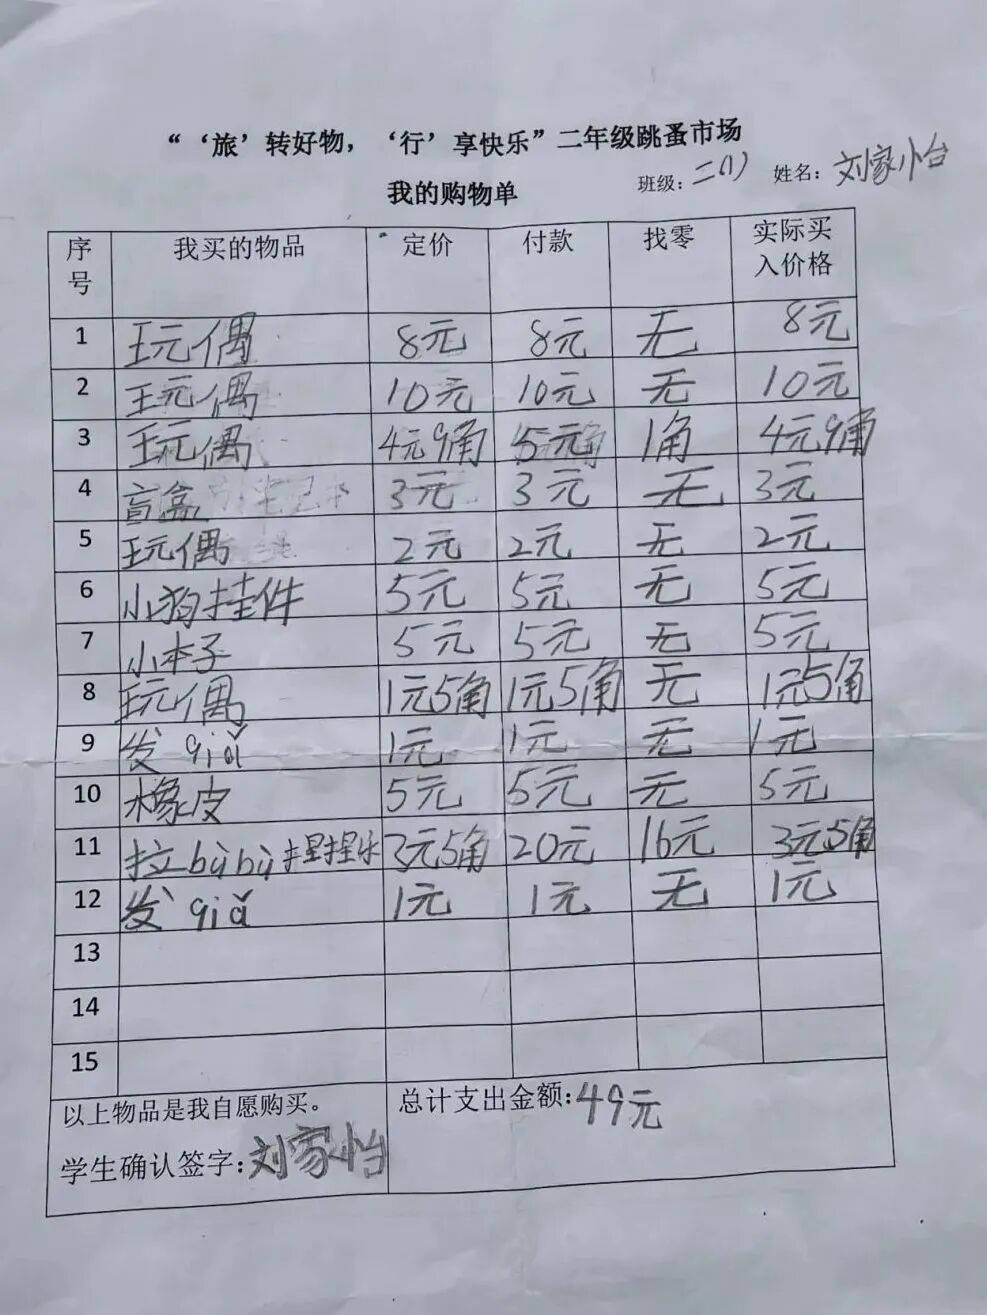 “‘旅’转好物，‘行’享快乐”二年级跳蚤市场
我的购物单 班级：二(1) 姓名：刘家怡
序号 我买的物品 定价 付款 找零 实际买入价格
1 玩偶 8元 8元 无 8元
2 玩偶 10元 10元 无 10元
3 玩偶 4元9角 5元 1角 4元9角
4 盲盒 3元 3元 无 3元
5 玩偶 2元 2元 无 2元
6 小狗挂件 5元 5元 无 5元
7 小本子 5元 5元 无 5元
8 玩偶 1元5角 1元5角 无 1元5角
9 发qiǎ 1元 1元 无 1元
10 橡皮 5元 5元 无 5元
11 拉bùbù捏捏乐 3元5角 20元 16元 3元5角
12 发qiǎ 1元 1元 无 1元
13
14
15
以上物品是我自愿购买。 总计支出金额：49元
学生确认签字：刘家怡